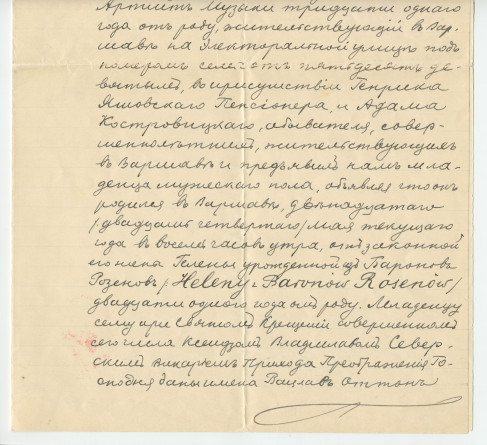 Артистъ Музыки тридцати одного
года отъ роду, жительствующій въ Вар-
шавѣ на Электоральной улицѣ подъ
номеромъ семьсотъ пятьдесятъ де-
вятымъ, въ присутствіи Генриха
Яновскаго Пенсіонера, и Адама
Костровицкаго, обывателя, совер-
шеннолѣтнихъ, жительствующихъ
въ Варшавѣ и предъявилъ намъ мла-
денца мужескаго пола, объявляя что онъ
родился въ Варшавѣ, двѣнадцатаго
/двадцать четвертаго/ Мая текущаго
года въ восемь часовъ утра, отъ законной
его жены Гелены урожденной изъ Бароновъ
Розеновъ /Heleny z Baronow Rosenów/
двадцати одного года отъ роду. Младенцу
сему при Святомъ Крещеніи совершенномъ
сего числа Ксендзомъ Владиславомъ Север-
скимъ Викаріемъ Прихода Преображенія Го-
сподня даны имена Вацлавъ Оттонъ